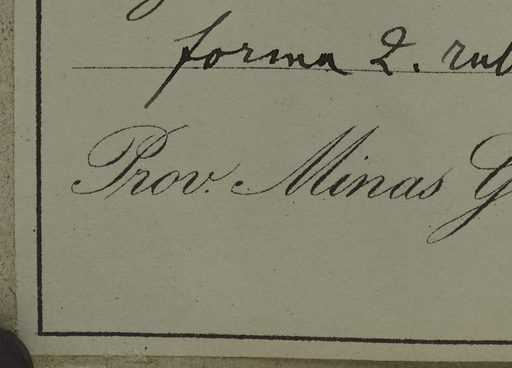 forma 2. rub
Prov. Minas G